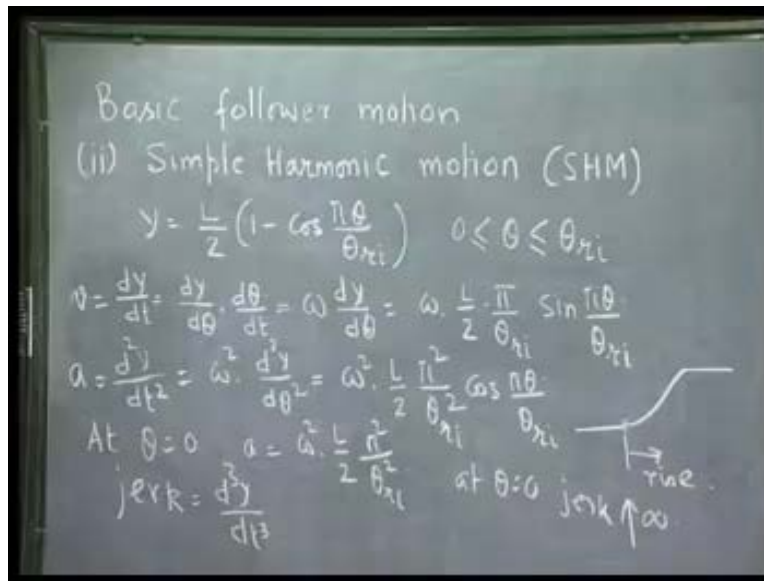 Basic follower motion
(ii) Simple Harmonic motion (SHM)
y = L/2 (1 - cos πθ/θri) 0 ≤ θ ≤ θri
v = dy/dt = dy/dθ · dθ/dt = ω dy/dθ = ω · L/2 · π/θri sin πθ/θri
a = d²y/dt² = ω² · d²y/dθ² = ω² · L/2 π²/θ²ri cos πθ/θri
At θ=0 a = ω² · L/2 π²/θ²ri
rise
jerk = d³y/dt³ at θ=0 jerk ↑ ∞